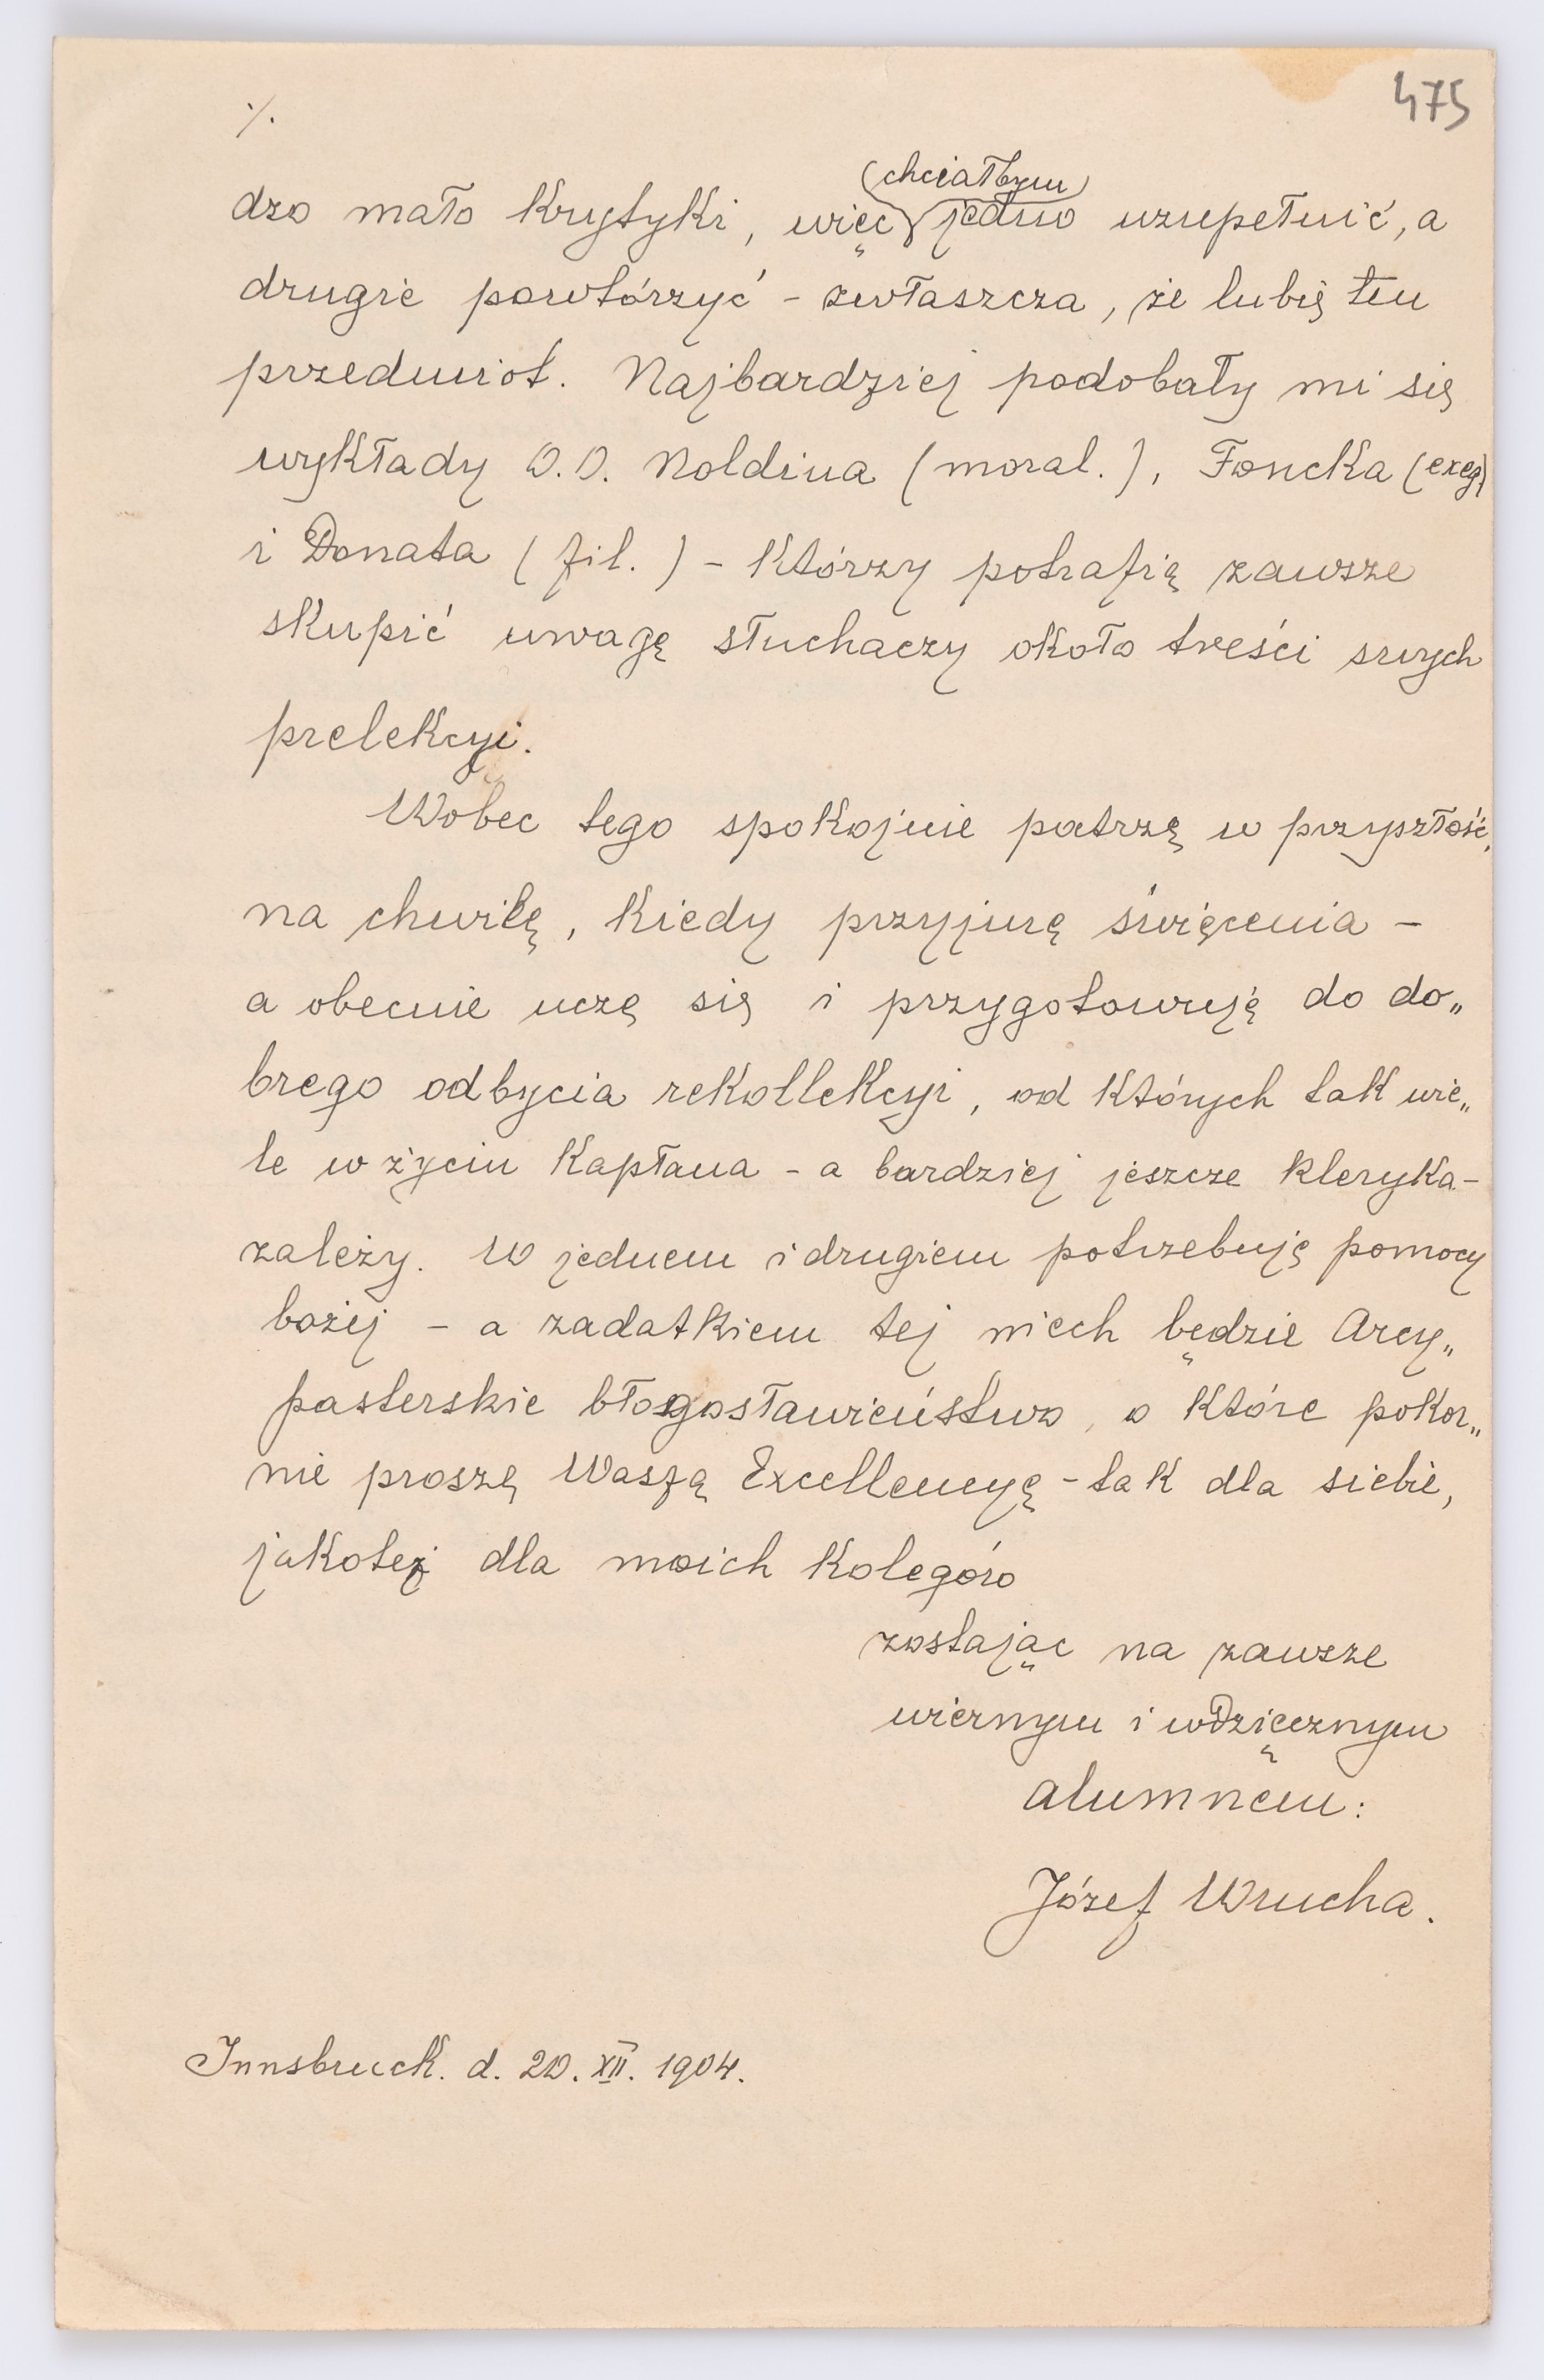 475
./.
(chciałbym)
dzo mało krytyki, więc jedno uzupełnić, a
drugie powtórzyć - zwłaszcza, że lubię ten
przedmiot. Najbardziej podobały mi się
wykłady O.O. Noldina (moral.), Foncka (exeg.)
i Donata (fil.) - którzy potrafią zawsze
skupić uwagę słuchaczy około treści swych
prelekcyi.
Wobec tego spokojnie patrzę w przyszłość,
na chwilę, kiedy przyjmę święcenia -
a obecnie uczę się i przygotowuję do do„
brego odbycia rekollekcyi, od których tak wie„
le w życiu kapłana - a bardziej jeszcze kleryka -
zależy. W jednem i drugiem potrzebuję pomocy
bożej - a zadatkiem tej niech będzie Arcy„
pasterskie błogosławieństwo, o które pokor„
nie proszę Waszą Excellencyę - tak dla siebie,
jakoteż dla moich kolegów
zostając na zawsze
wiernym i wdzięcznym
alumnem:
Józef Wrucha.
Innsbruck. d. 20. XII. 1904.